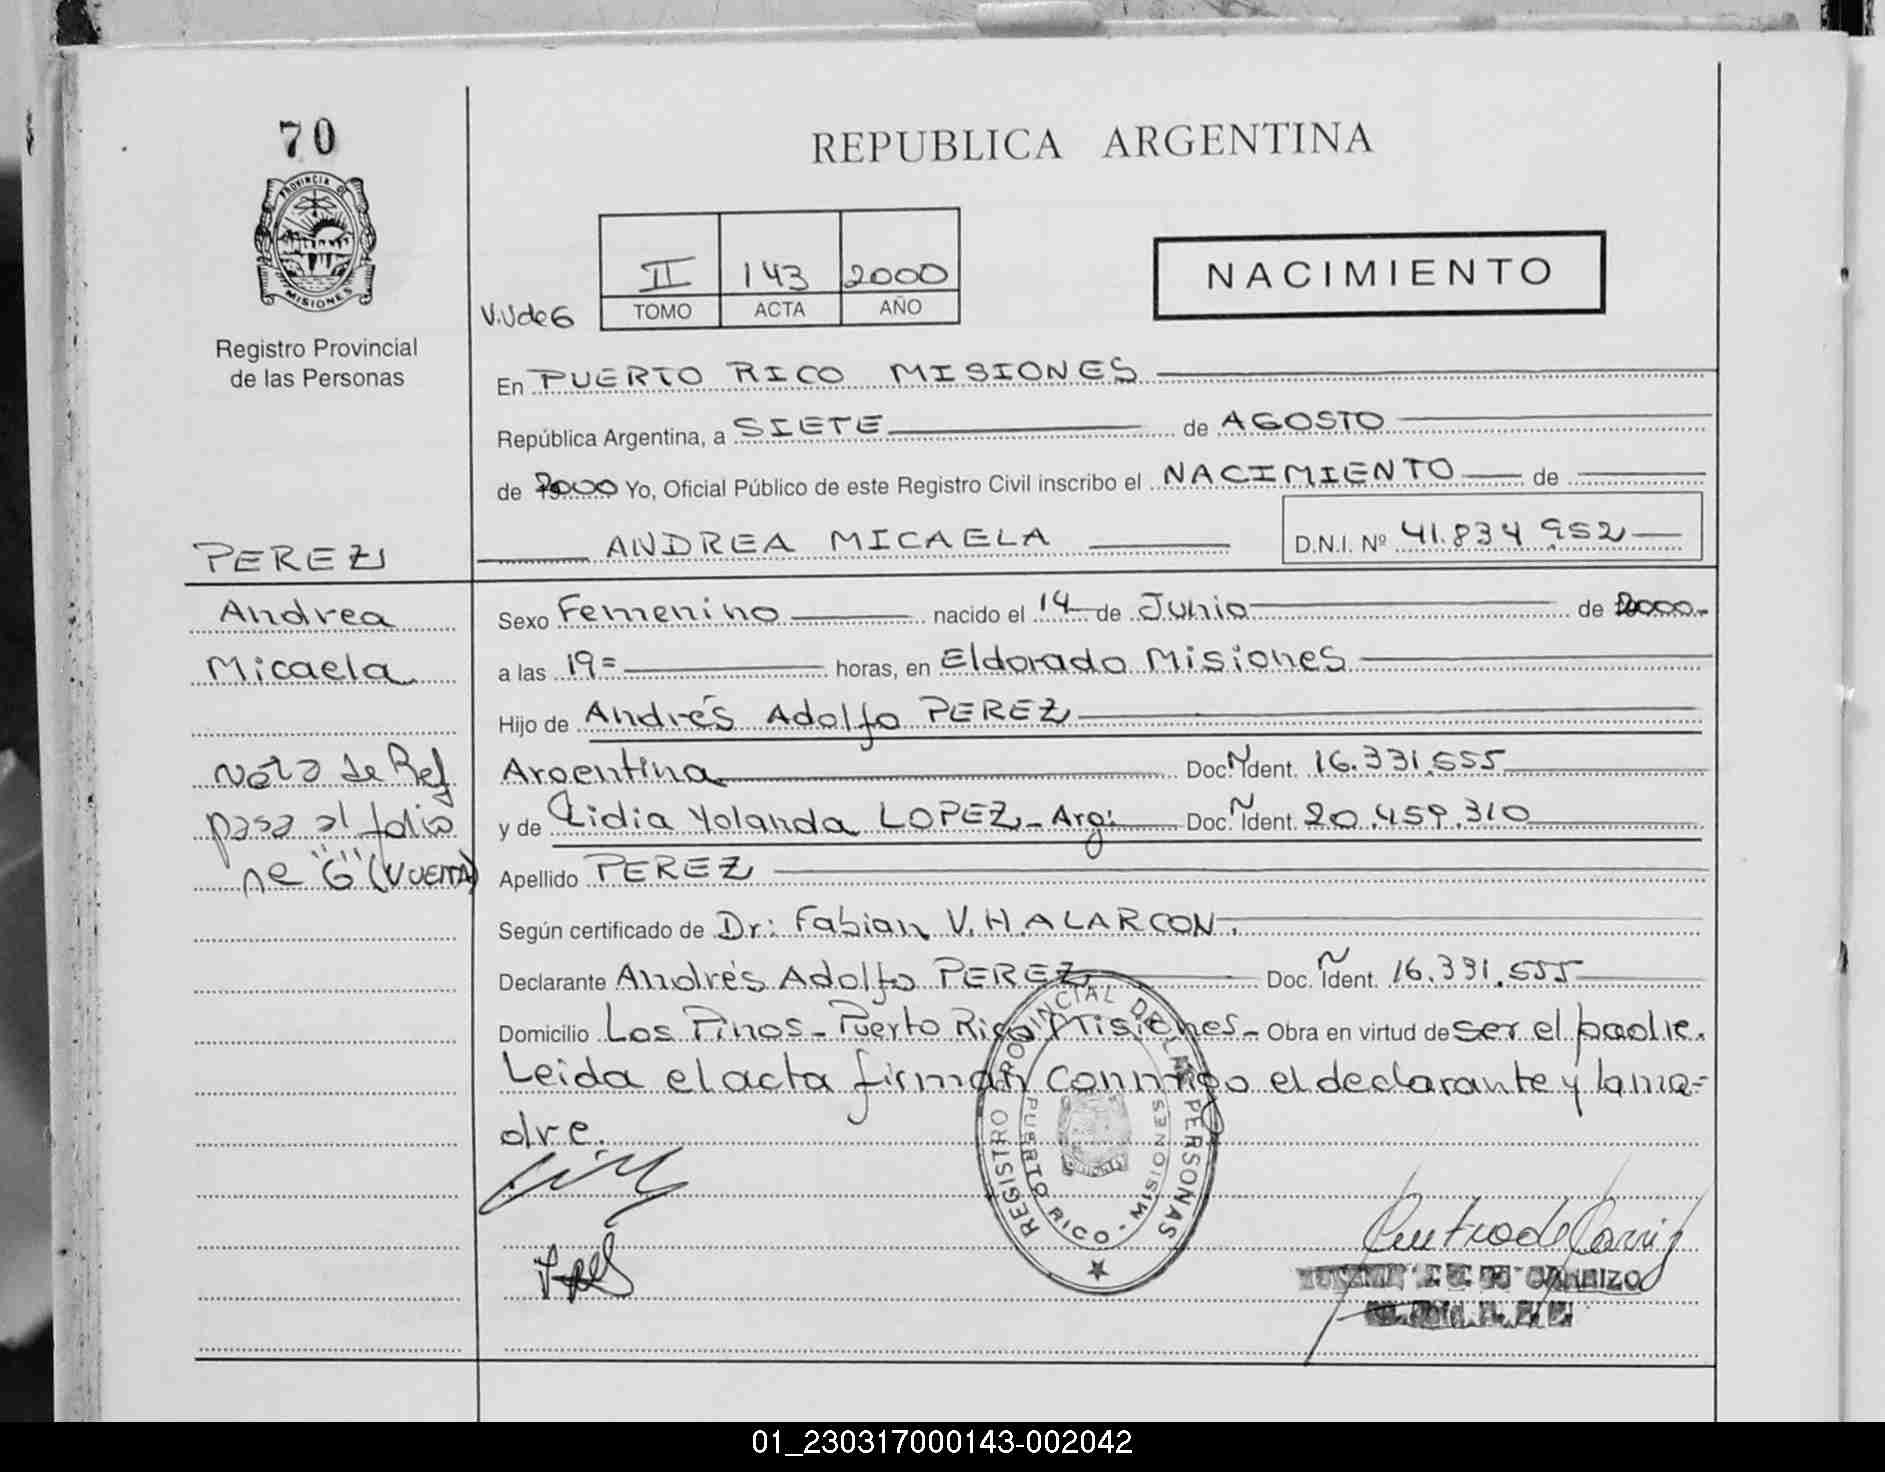 70
REPUBLICA ARGENTINA
PROVINCIA DE
MISIONES
Registro Provincial
de las Personas
V.V de 6
II 143 2000
TOMO ACTA AÑO
NACIMIENTO
En PUERTO RICO MISIONES
República Argentina, a SIETE de AGOSTO
de 2000 Yo, Oficial Público de este Registro Civil inscribo el NACIMIENTO de
ANDREA MICAELA D.N.I. Nº 41.834.952
PEREZ
Andrea
Micaela
Nota de Ref
pasa al folio
ne "6" (VUELTA)
Sexo Femenino nacido el 14 de Junio de 2000.
a las 19= horas, en Eldorado Misiones
Hijo de Andrés Adolfo PEREZ
Argentina Doc. Ident. 16.331.555
y de Lidia Yolanda LOPEZ - Arg: Doc. Ident. 20.459.310
Apellido PEREZ
Según certificado de Dr: Fabian V.H. ALARCON.
Declarante Andrés Adolfo PEREZ Doc. Ident. 16.331.555
Domicilio Los Pinos - Puerto Rico Misiones - Obra en virtud de ser el padre.
Leida el acta firman conmigo el declarante y la ma=
dre.
REGISTRO PROVINCIAL DE LAS PERSONAS
PUERTO RICO - MISIONES
CARRIZO
01_230317000143-002042